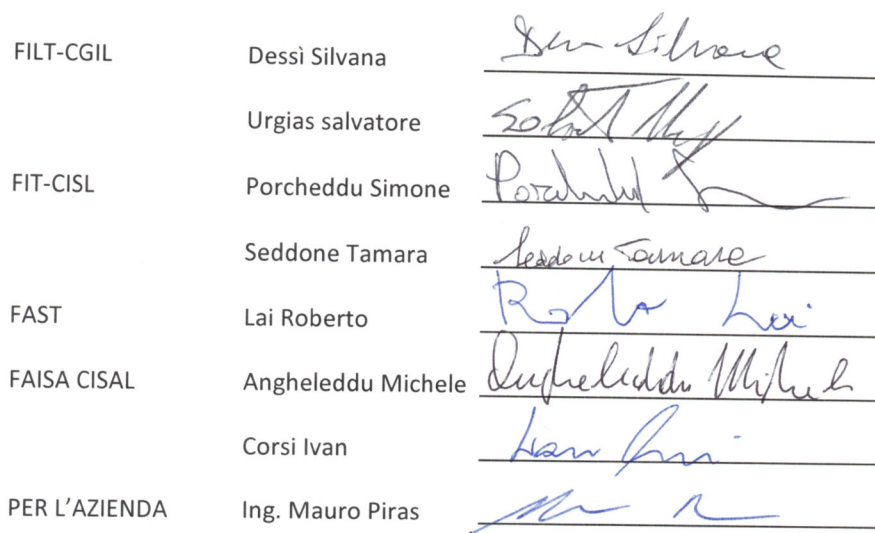 FILT-CGIL Dessì Silvana Silvana
Urgias salvatore
FIT-CISL Porcheddu Simone
Seddone Tamara Seddone Tamara
FAST Lai Roberto Lai
FAISA CISAL Angheleddu Michele Angheleddu Michele
Corsi Ivan Ivan
PER L'AZIENDA Ing. Mauro Piras